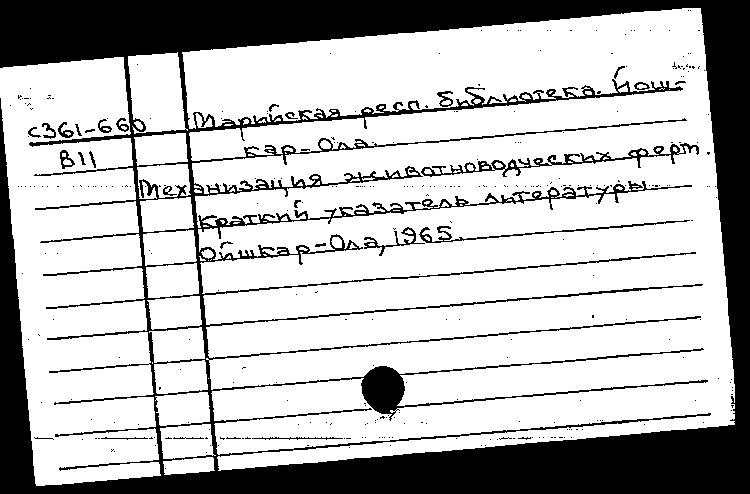 с361-660 Марийская респ. библиотека. Йош-
В11 кар-Ола.
Механизация животноводческих ферм.
Краткий указатель литературы.
Ойшкар-Ола, 1965.